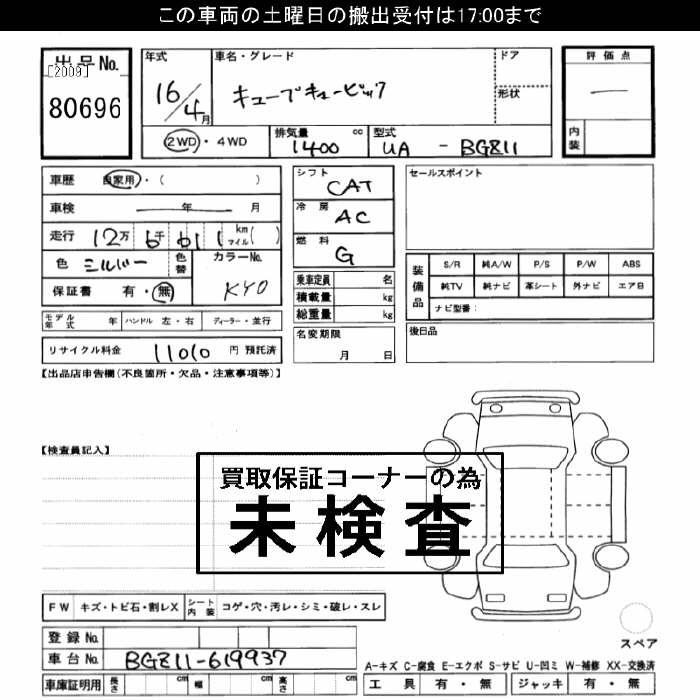 この車両の土曜日の搬出受付は17:00まで
出品No. [2009] 80696
年式 16/4月
車名・グレード キューブキュービック
ドア
形状
評価点 —
内装
2WD・4WD
排気量 1400 cc
型式 UA - BGZ11
車歴 自家用・( )
車検 年 月
走行 12万6千611 km マイル( )
色 シルバー 色替 カラーNo. KY0
保証書 有・無
モデル年式 年 ハンドル 左・右 ディーラー・並行
リサイクル料金 11010 円 預託済
シフト CAT
冷房 AC
燃料 G
乗車定員 名
積載量 kg
総重量 kg
名変期限 月 日
セールスポイント
装備品 S/R 純A/W P/S P/W ABS
純TV 純ナビ 革シート 外ナビ エアB
ナビ型番:
後日品
【出品店申告欄(不良箇所・欠品・注意事項等)】
【検査員記入】
買取保証コーナーの為
未検査
FW キズ・トビ石・割レX シート内装 コゲ・穴・汚レ・シミ・破レ・スレ
スペア
登録No.
車台No. BGZ11-619937
車庫証明用 長さ cm 幅 cm 高さ cm
A-キズ C-腐食 E-エクボ S-サビ U-凹ミ W-補修 XX-交換済
工具 有・無 ジャッキ 有・無